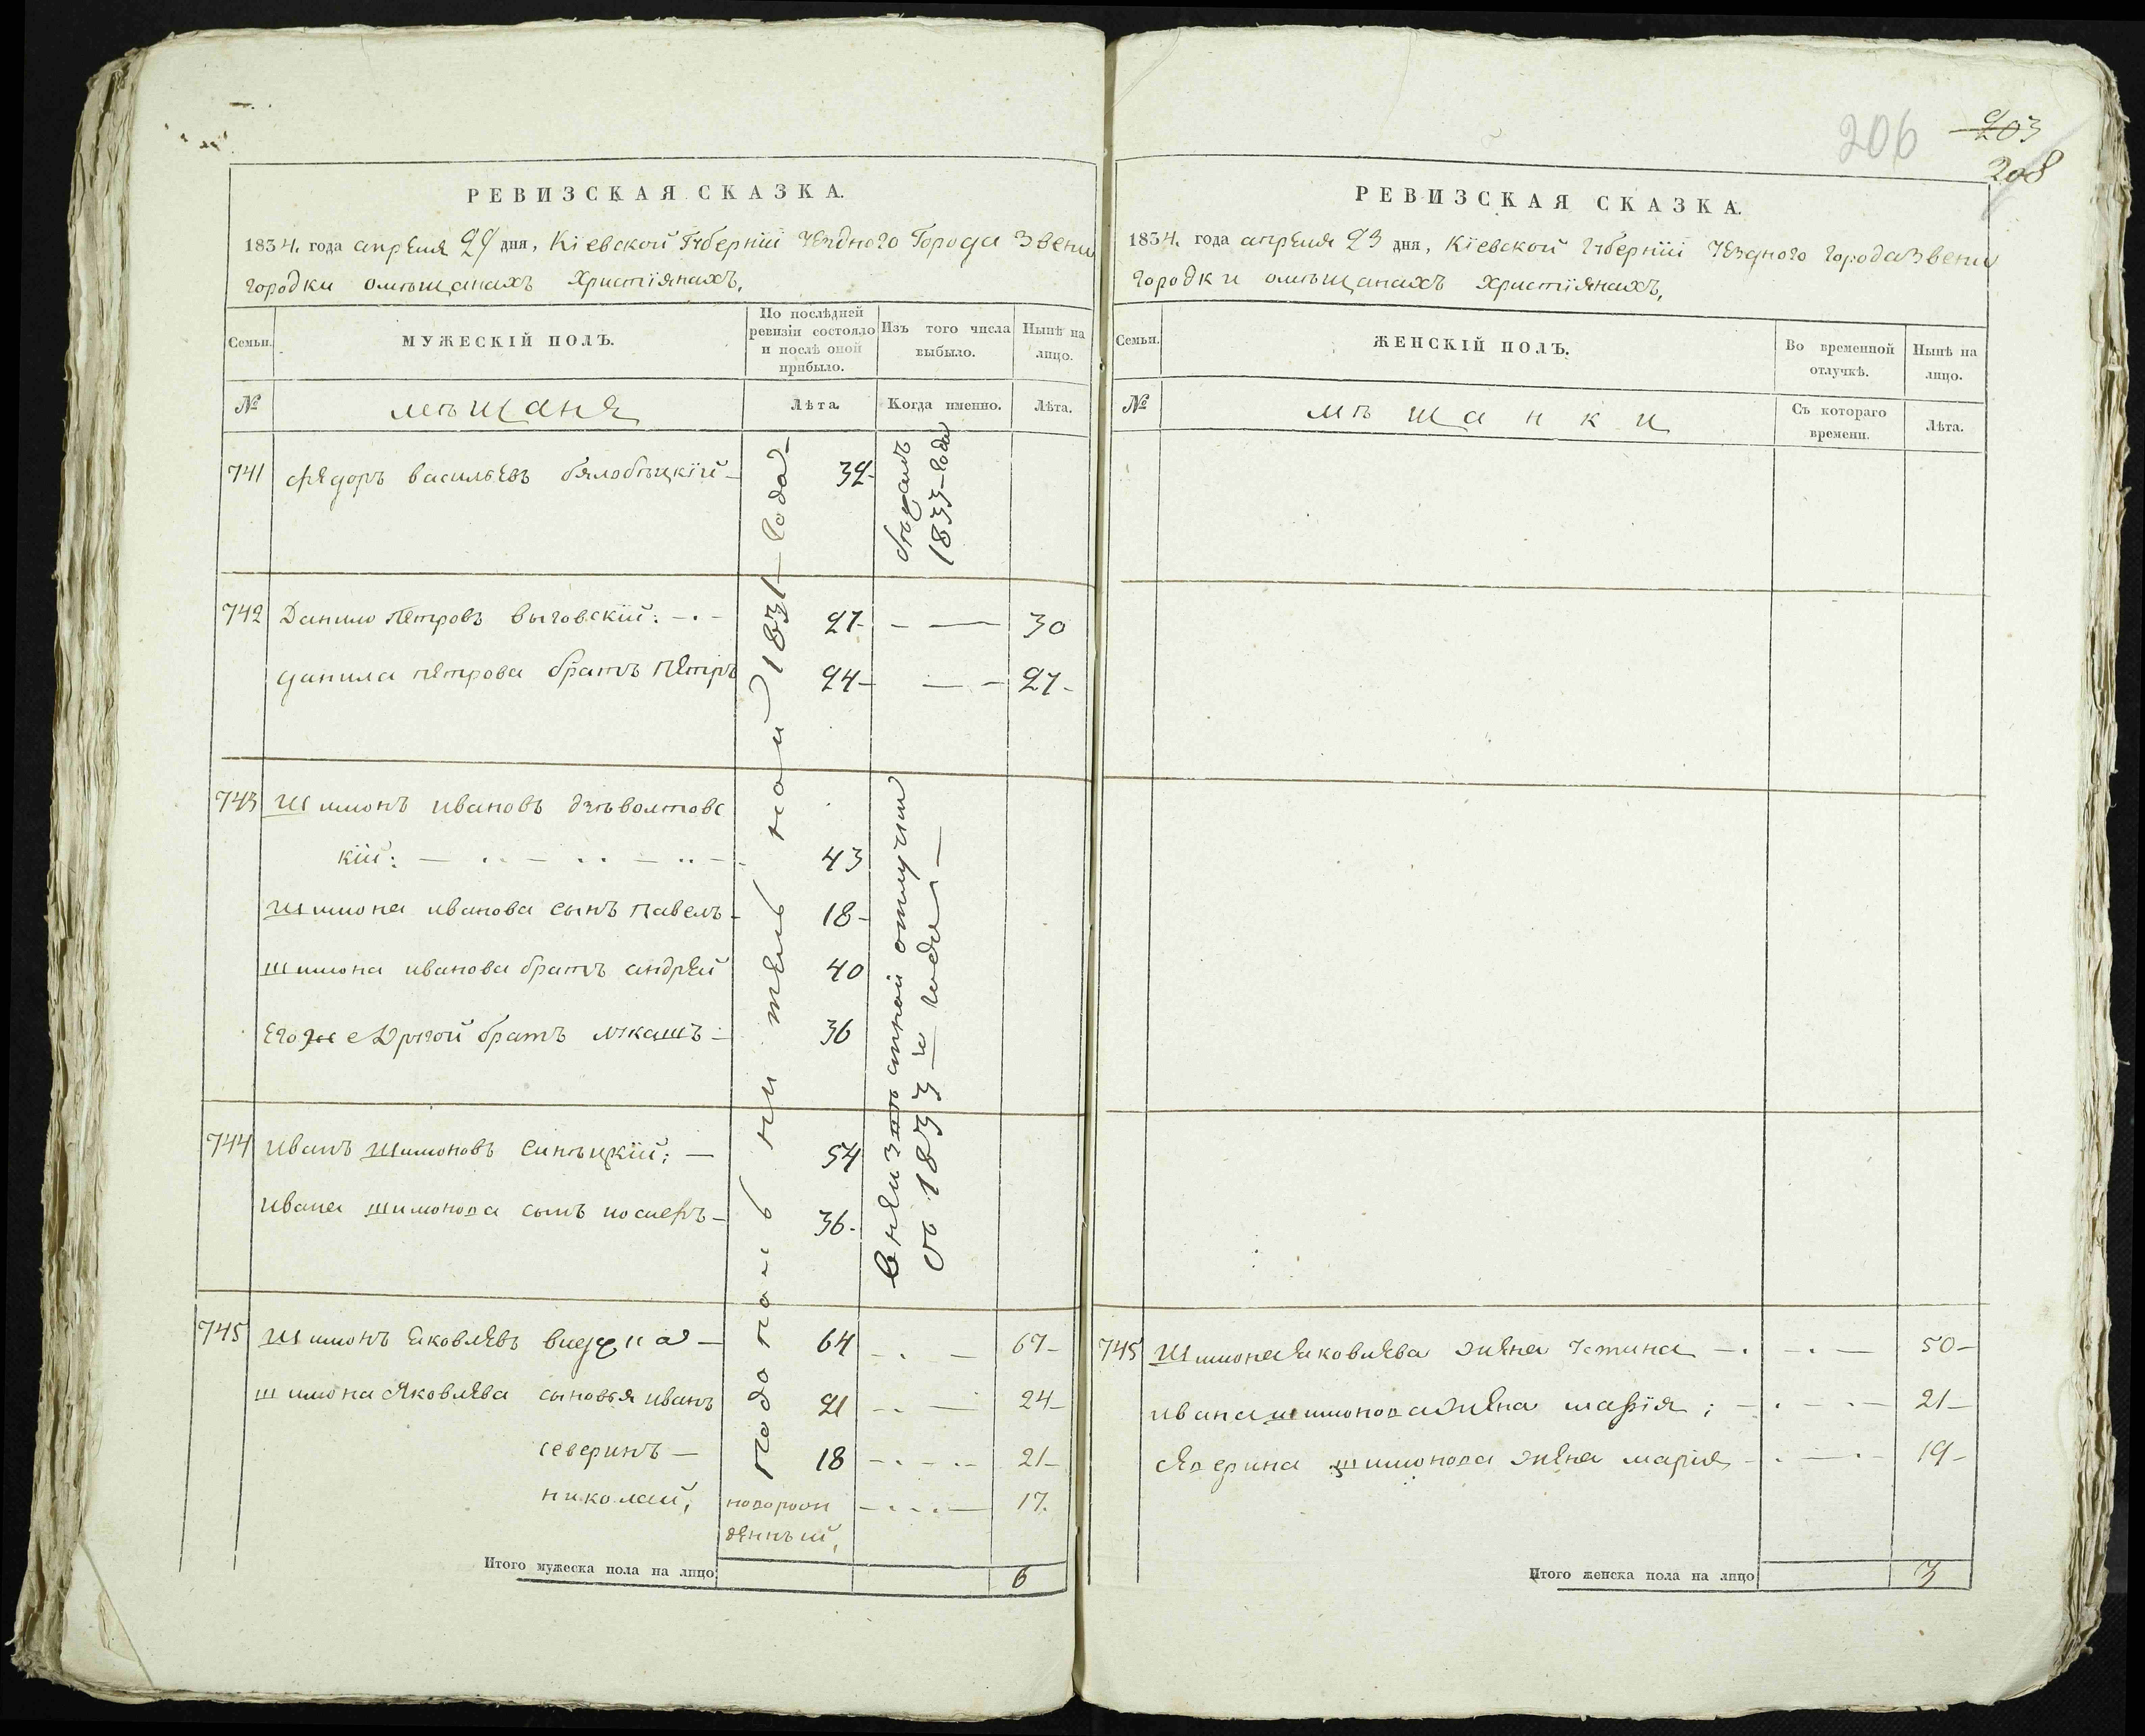 206
203
208
РЕВИЗСКАЯ СКАЗКА.
1834. года апреля 29 дня, Кіевской Губерніи Уезднаго Города Звени
городки омѣщанахъ Християнахъ,
Семьи.
МУЖЕСКІЙ ПОЛЪ.
По послѣдней ревизіи состояло и послѣ оной прибыло.
Изъ того числа выбыло.
Нынѣ на лицо.
№
мѣщаня
Лѣта
Когда именно.
Лѣта.
подополнительной 1831 года
741 Федоръ Васильевъ Бялобѣцкій 32
1833 года
742 Данило Петровъ Выговскій: 27 30
Данила Петрова братъ Петръ 24 27
743 Шимонъ Ивановъ
кій: 43
Шимона Иванова сынъ Павелъ 18
Шимона Иванова братъ Андрей 40
Егоже Другой братъ Лукашъ 36
744 Иванъ Шимоновъ Синѣцкій; 54
Ивана Шимонова сынъ 36
внеизвѣстной отлучки
съ 1833 года
745 Шимонъ Яковлевъ 64 67
Шимона Яковлева сыновья Иванъ 21 24
Северинъ 18 21
Николай, новорож 17.
денный,
Итого мужеска пола на лицо 6
РЕВИЗСКАЯ СКАЗКА.
1834. года апреля 23 дня, Кіевской Губерніи Уезднаго города Звени
городки омѣщанахъ Християнахъ,
Семьи.
ЖЕНСКІЙ ПОЛЪ.
Во временной отлучкѣ.
Нынѣ на лицо.
№
мѣщанки
Съ котораго времени.
Лѣта.
745 Шимона Яковлева жена Устина 50
Ивана Шимонова жена Марія; 21
Северина Шимонова жена Марія 19
Итого женска пола на лицо 3